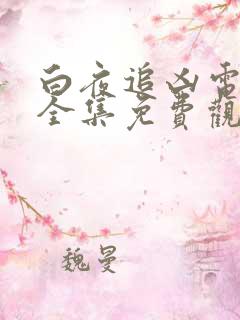 白夜追凶電
全集免費觀
魏曼